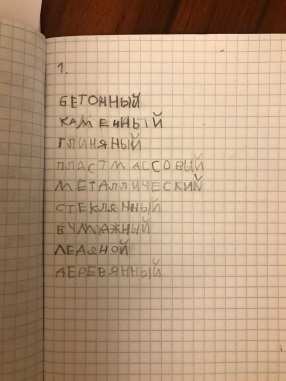 1.
БЕТОННЫЙ
КАМЕННЫЙ
ГЛИНЯНЫЙ
ПЛАСТМАССОВЫЙ
МЕТАЛЛИЧЕСКИЙ
СТЕКЛЯННЫЙ
БУМАЖНЫЙ
ЛЕДЯНОЙ
ДЕРЕВЯННЫЙ